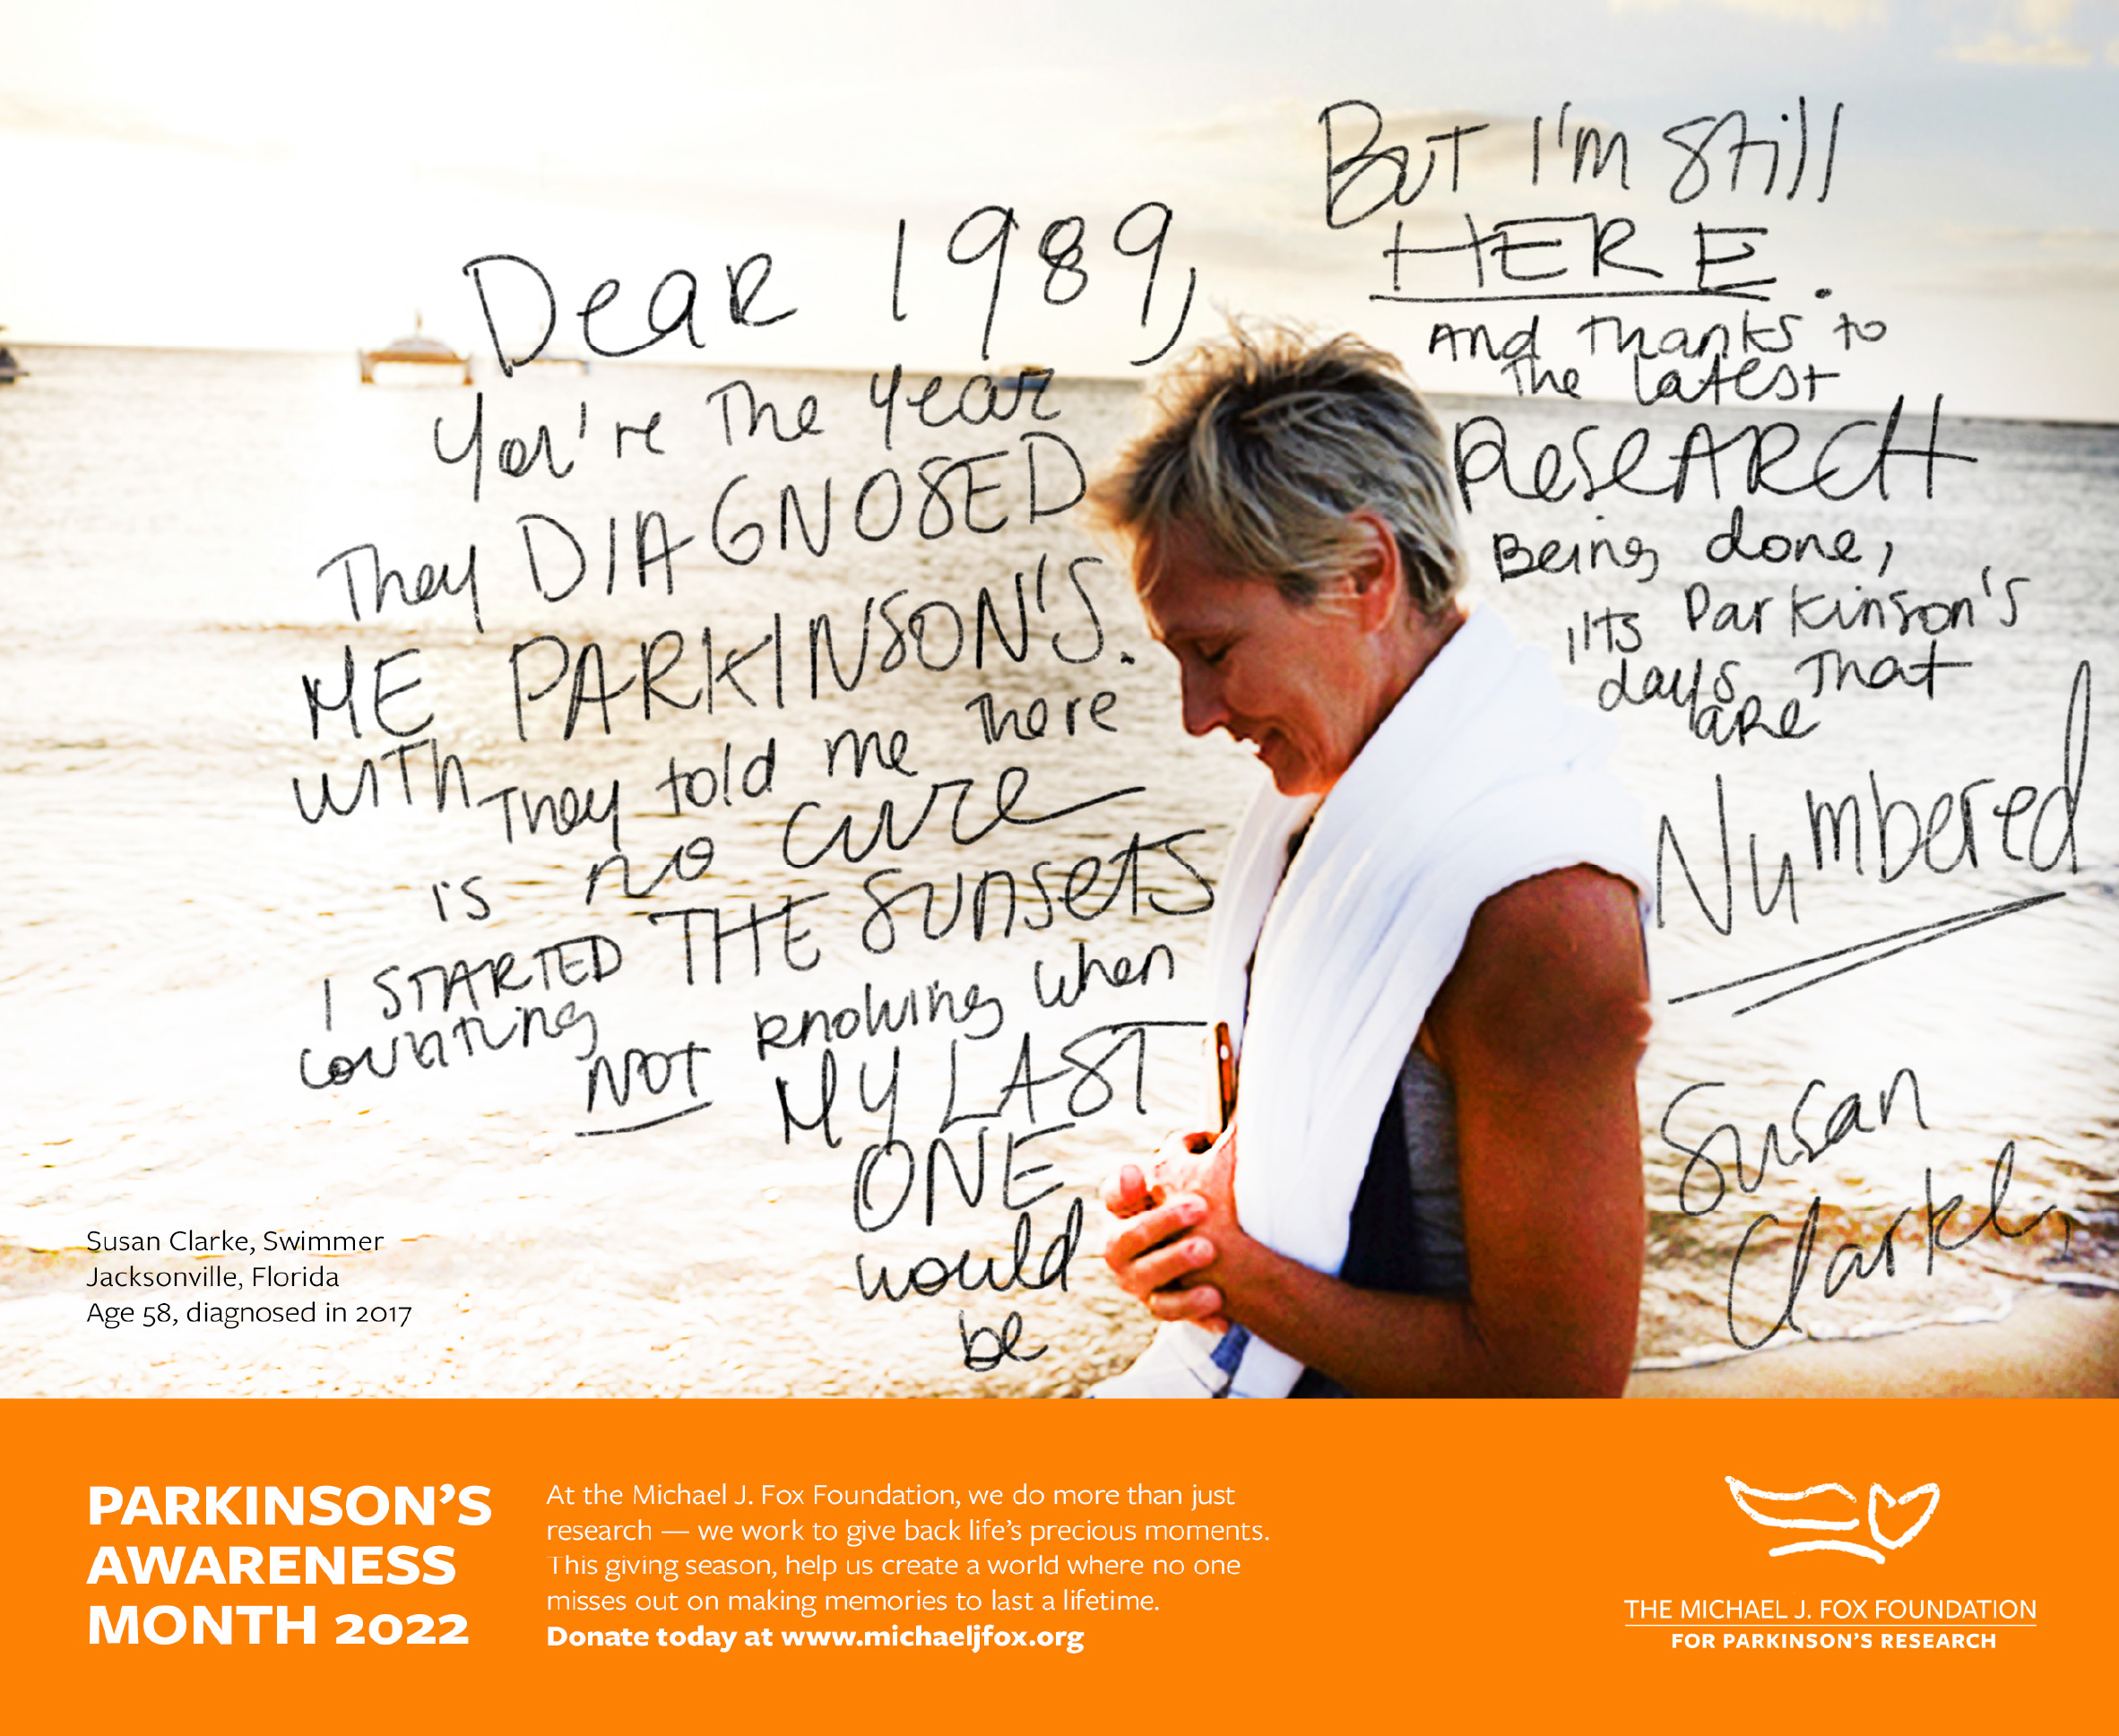 Dear 1989,
You're the year
They DIAGNOSED
ME PARKINSON'S.
with They told me there
is no cure
I STARTED THE SUNSETS
counting
NOT knowing when
MY LAST
ONE
would
be
But I'm still
HERE.
And thanks to
the latest
ReseARCH
Being done,
its Parkinson's
days that
are
Numbered
Susan
Clarke,
Susan Clarke, Swimmer
Jacksonville, Florida
Age 58, diagnosed in 2017
PARKINSON'S
AWARENESS
MONTH 2022
At the Michael J. Fox Foundation, we do more than just
research — we work to give back life's precious moments.
This giving season, help us create a world where no one
misses out on making memories to last a lifetime.
Donate today at www.michaeljfox.org
THE MICHAEL J. FOX FOUNDATION
FOR PARKINSON'S RESEARCH